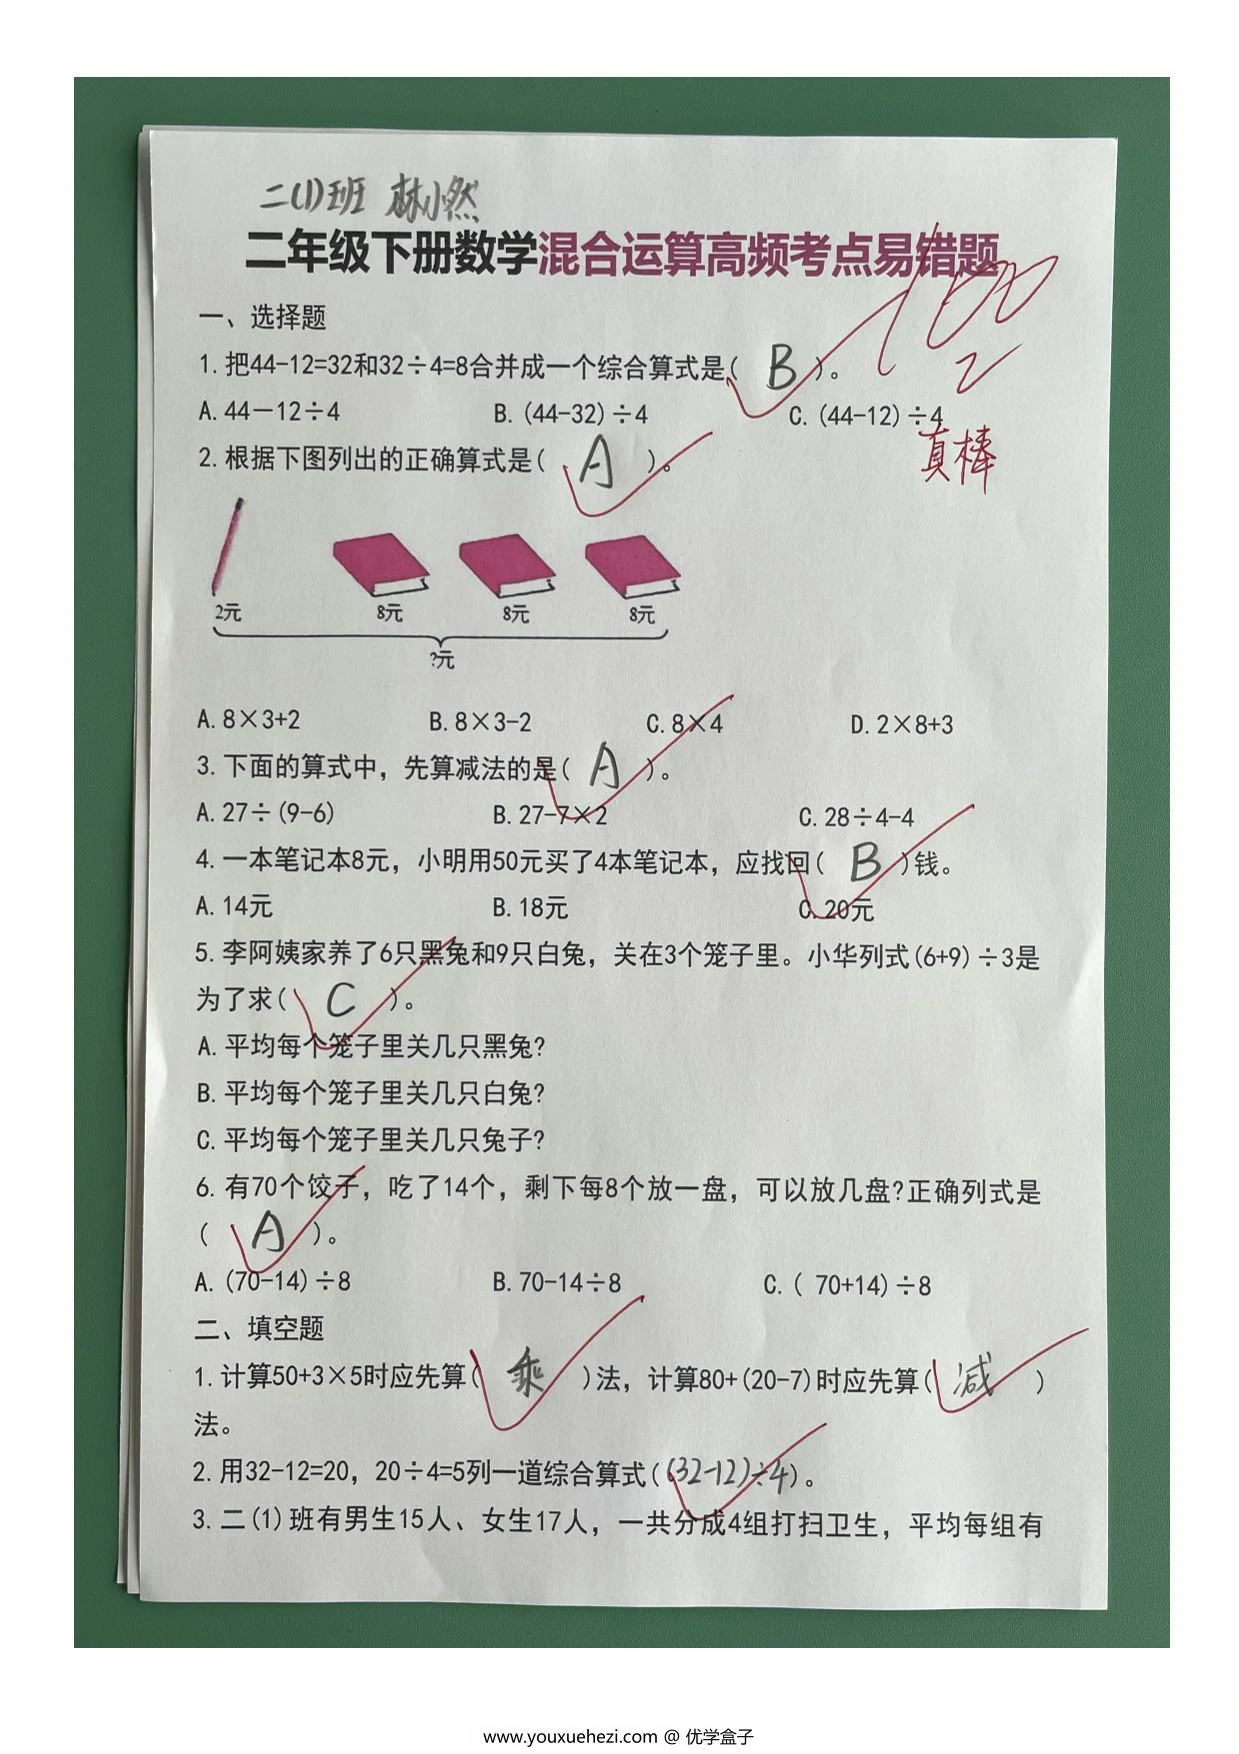 二(1)班 林小然
二年级下册数学混合运算高频考点易错题
100
一、选择题
1.把44-12=32和32÷4=8合并成一个综合算式是( B )。
A.44-12÷4 B.(44-32)÷4 C.(44-12)÷4
真棒
2.根据下图列出的正确算式是( A )。
2元 8元 8元 8元
?元
A.8×3+2 B.8×3-2 C.8×4 D.2×8+3
3.下面的算式中，先算减法的是( A )。
A.27÷(9-6) B.27-7×2 C.28÷4-4
4.一本笔记本8元，小明用50元买了4本笔记本，应找回( B )钱。
A.14元 B.18元 C.20元
5.李阿姨家养了6只黑兔和9只白兔，关在3个笼子里。小华列式(6+9)÷3是
为了求( C )。
A.平均每个笼子里关几只黑兔?
B.平均每个笼子里关几只白兔?
C.平均每个笼子里关几只兔子?
6.有70个饺子，吃了14个，剩下每8个放一盘，可以放几盘?正确列式是
( A )。
A.(70-14)÷8 B.70-14÷8 C.( 70+14)÷8
二、填空题
1.计算50+3×5时应先算( 乘 )法，计算80+(20-7)时应先算( 减 )
法。
2.用32-12=20，20÷4=5列一道综合算式((32-12)÷4)。
3.二(1)班有男生15人、女生17人，一共分成4组打扫卫生，平均每组有
www.youxuehezi.com @ 优学盒子